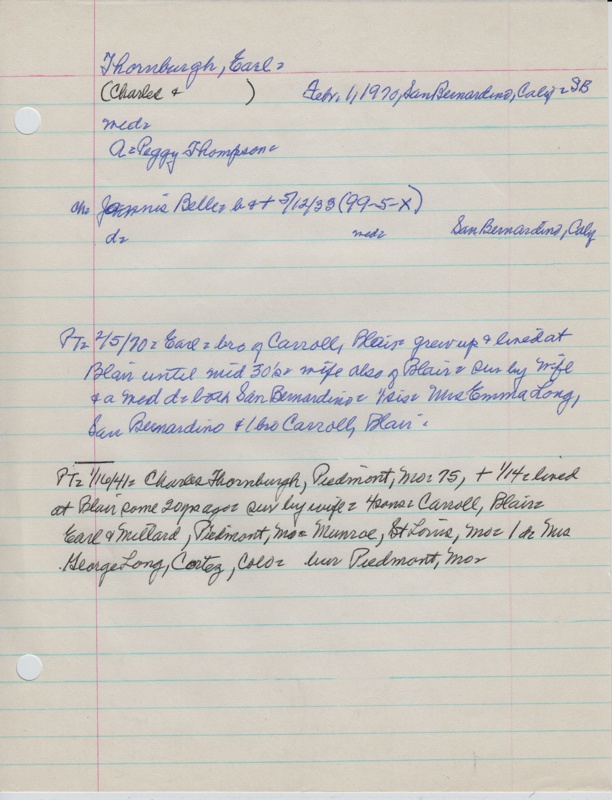 Thornburgh, Earl=
(Charles + ) Febr. 1, 1970, San Bernardino, Calif = SB
med=
A= Peggy Thompson=
ch= Jannis Belle= b&+ 5/12/33 (99-5-X)
d= med= San Bernardino, Calif
PT= 2/5/70= Earl= bro of Carroll, Blair= grew up & lived at
Blair until mid 30's= wife also of Blair= sur by wife
& a med d= both San Bernardino= 1 sis= Mrs Emma Long,
San Bernardino & 1 bro Carroll, Blair.
PT= 1/16/41= Charles Thornburgh, Piedmont, Mo= 75, + 1/14= lived
at Blair some 20 yrs ago= sur by wife= 4 sons= Carroll, Blair=
Earl & Millard, Piedmont, Mo= Munroe, St Louis, Mo= 1 d= Mrs
George Long, Cortez, Colo= bur Piedmont, Mo=